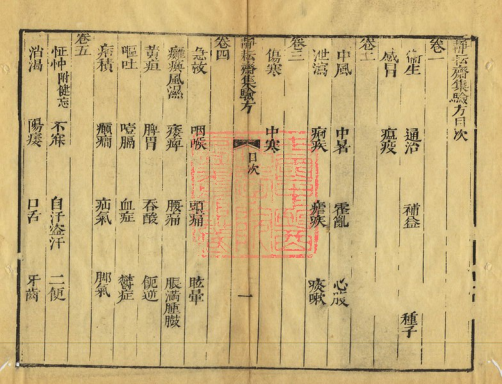 靜耘齋集驗方目次
卷一
衛生 通治 補益 種子
感冒 瘟疫
卷二
中風 中暑 霍亂 心腹
泄瀉 痢疾 瘧疾 痰嗽
卷三
傷寒 中寒
靜耘齋集驗方 目次 一
卷四
急救 咽喉 頭痛 眩暈
癱瘓風濕 痿痺 腰痛 脹滿腫臌
黃疸 脾胃 吞酸 便逆
嘔吐 噎膈 血症 鬱症
痞積 癲癇 疝氣 腳氣
卷五
怔忡附健忘 不寐 自汗盜汗 二便
消渴 陽痿 口舌 牙齒